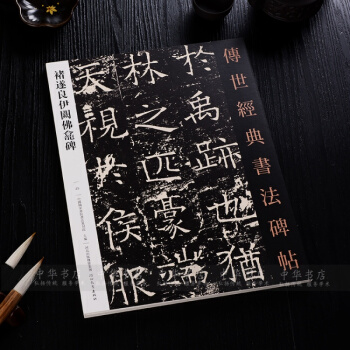 傳世經典書法碑帖
於禹跡也猶
林之匹豪端
天視於侯服
褚遂良伊闕佛龕碑
中华书店
中华书店